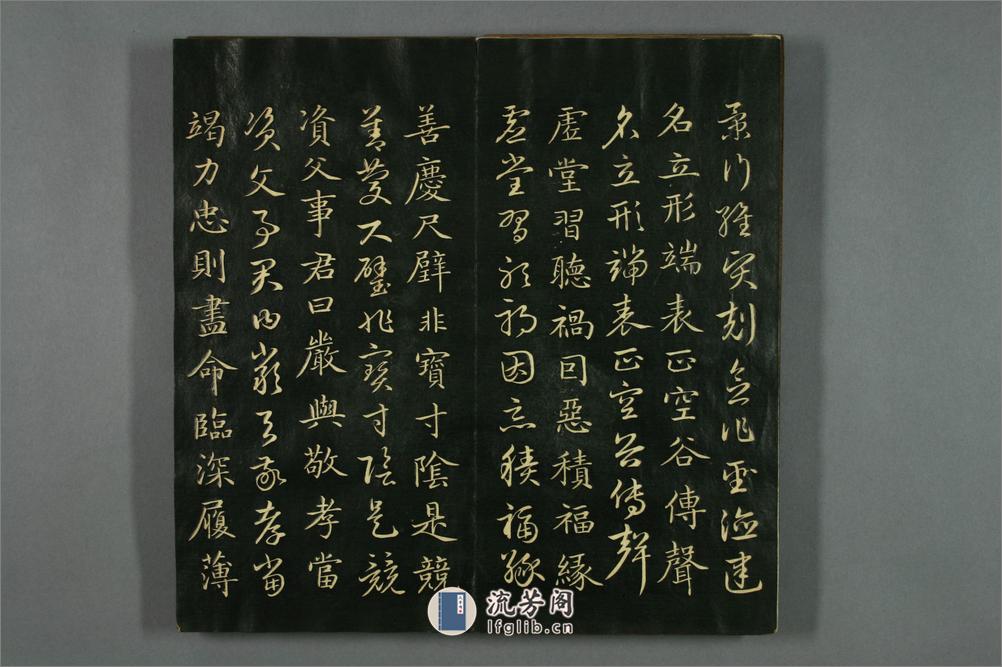 景行維賢剋念作聖德建
名立形端表正空谷傳聲
名立形端表正空谷傳聲
虛堂習聽禍囙惡積福緣
虛堂習聽禍因惡積福緣
善慶尺璧非寶寸陰是競
善慶尺璧非寶寸陰是競
資父事君曰嚴與敬孝當
資父事君曰嚴與敬孝當
竭力忠則盡命臨深履薄
流芳阁
lfglib.cn